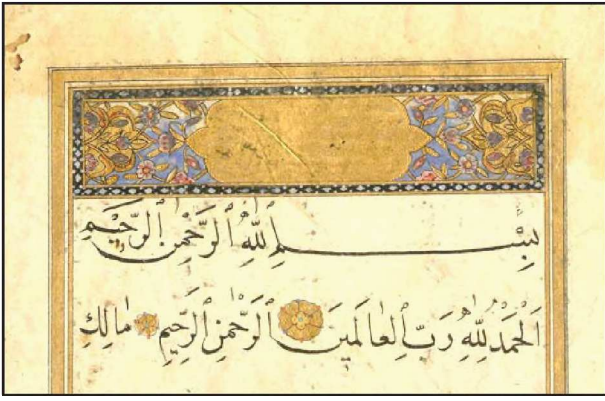 بِسْمِ اللّٰهِ الرَّحْمٰنِ الرَّحِيْمِ
اَلْحَمْدُ لِلّٰهِ رَبِّ الْعَالَمِينَ الرَّحْمٰنِ الرَّحِيمِ مَالِكِ